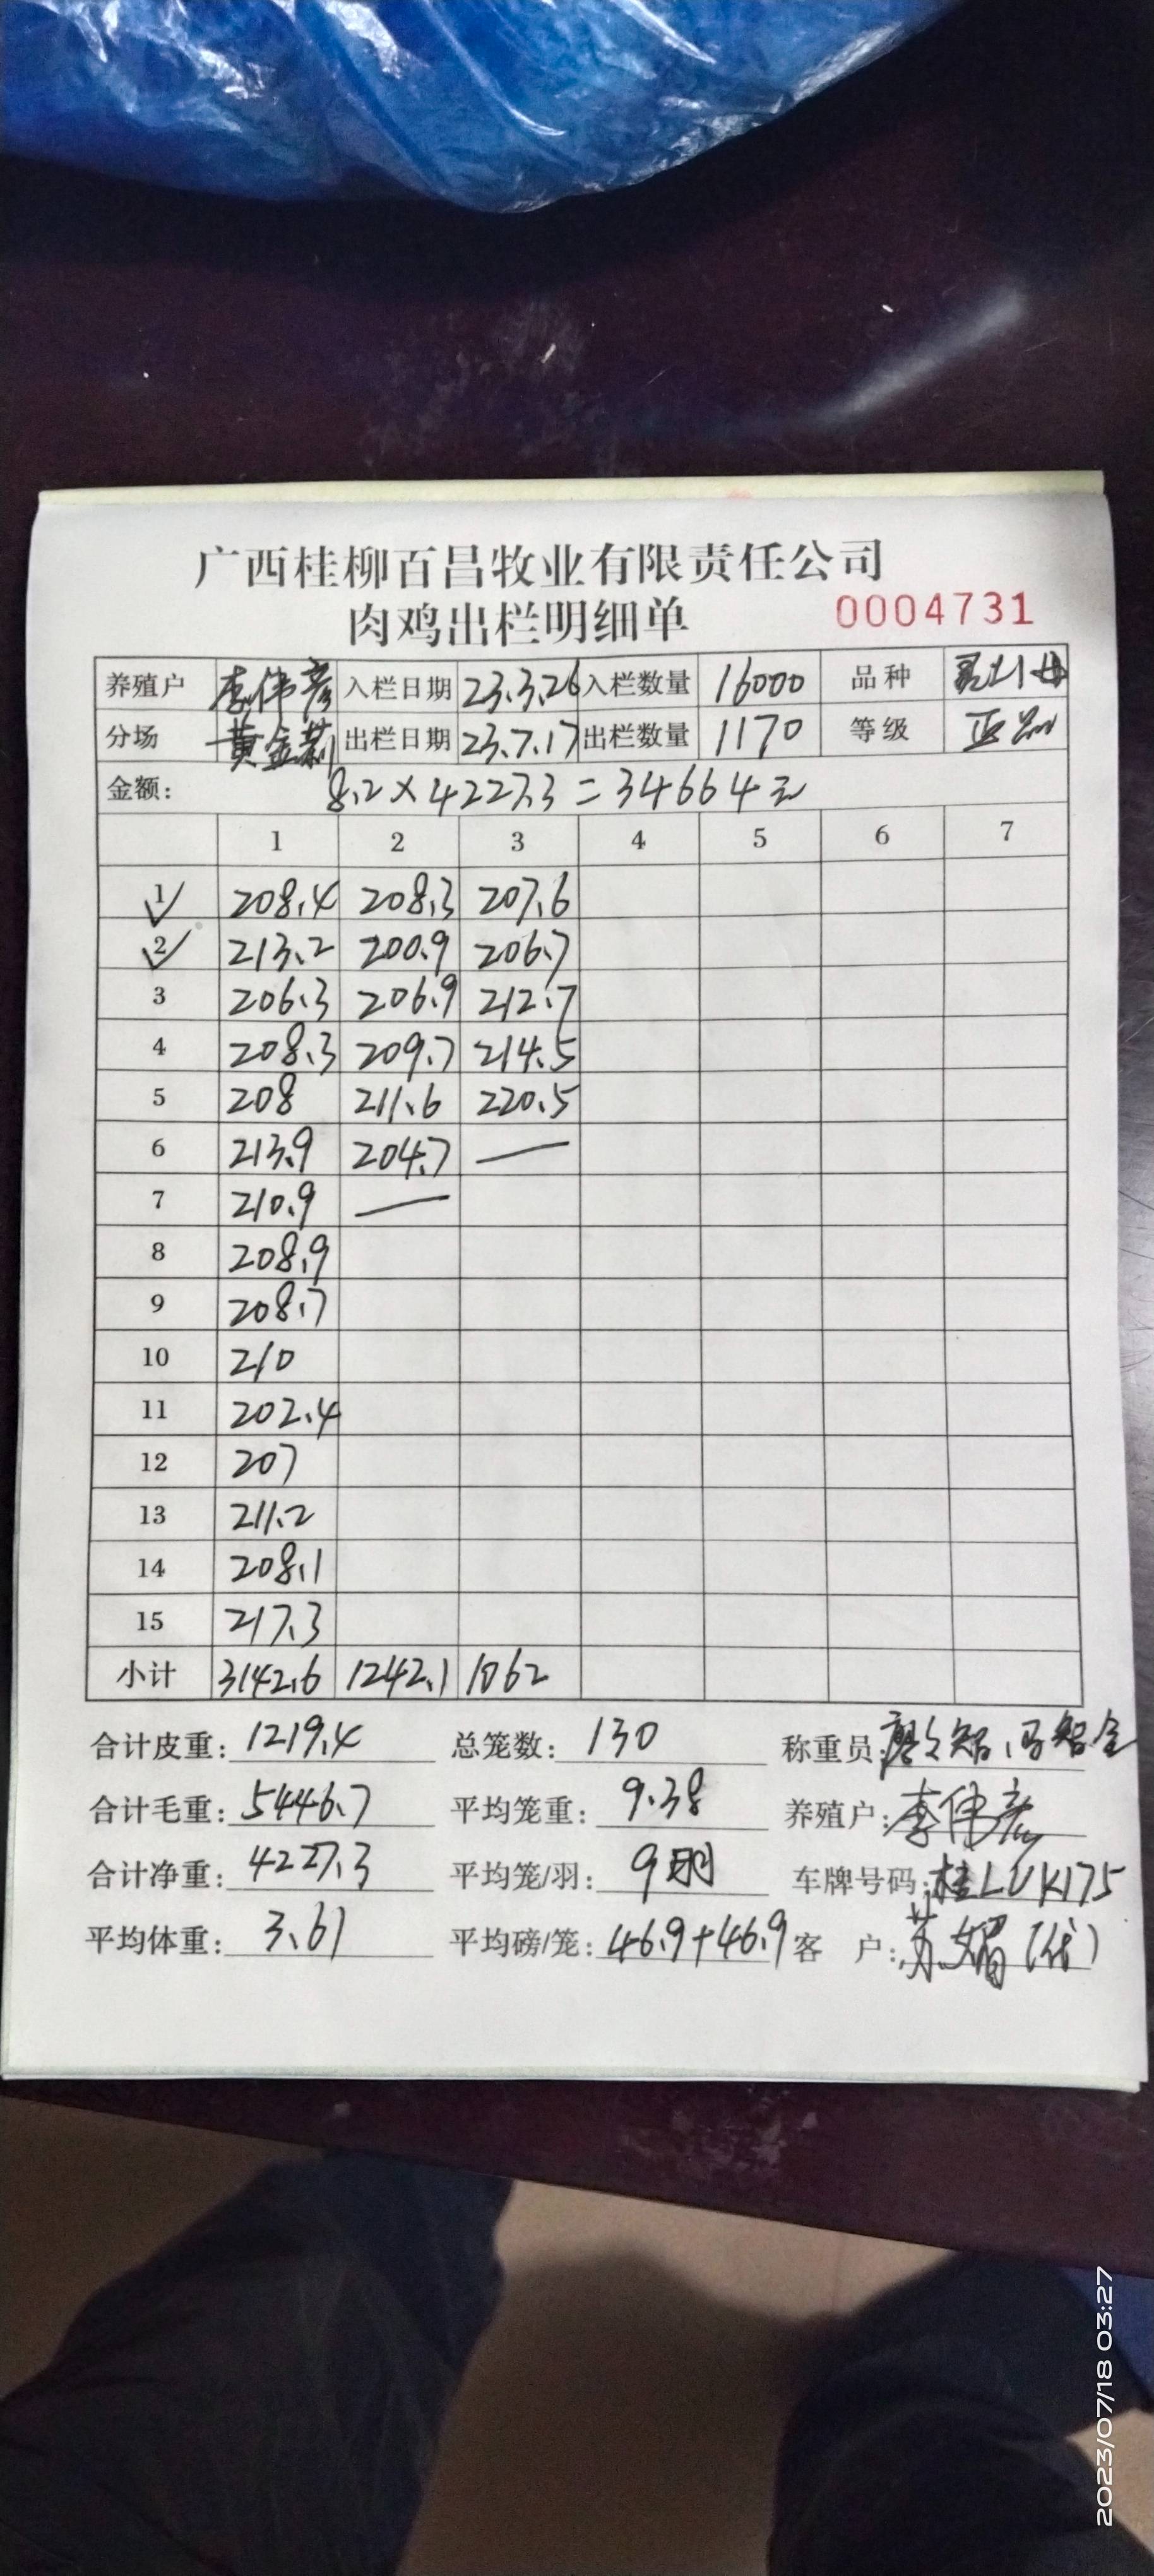 广西桂柳百昌牧业有限责任公司
肉鸡出栏明细单 0004731
养殖户 李伟彦 入栏日期 23.3.26 入栏数量 16000 品种
分场 黄金莉 出栏日期 23.7.17 出栏数量 1170 等级 正品
金额: 8.2×4227.3=34664元
1 2 3 4 5 6 7
1 208.4 208.3 207.6
2 213.2 200.9 206.7
3 206.3 206.9 212.7
4 208.3 209.7 214.5
5 208 211.6 220.5
6 213.9 204.7 —
7 210.9 —
8 208.9
9 208.7
10 210
11 202.4
12 207
13 211.2
14 208.1
15 217.3
小计 3142.6 1242.1 1062
合计皮重: 1219.4 总笼数: 130 称重员:
合计毛重: 5446.7 平均笼重: 9.38 养殖户: 李伟彦
合计净重: 4227.3 平均笼/羽: 9羽 车牌号码: 桂LUK175
平均体重: 3.61 平均磅/笼: 46.9+46.9 客 户: 苏媚(代)
2023/07/18 03:27